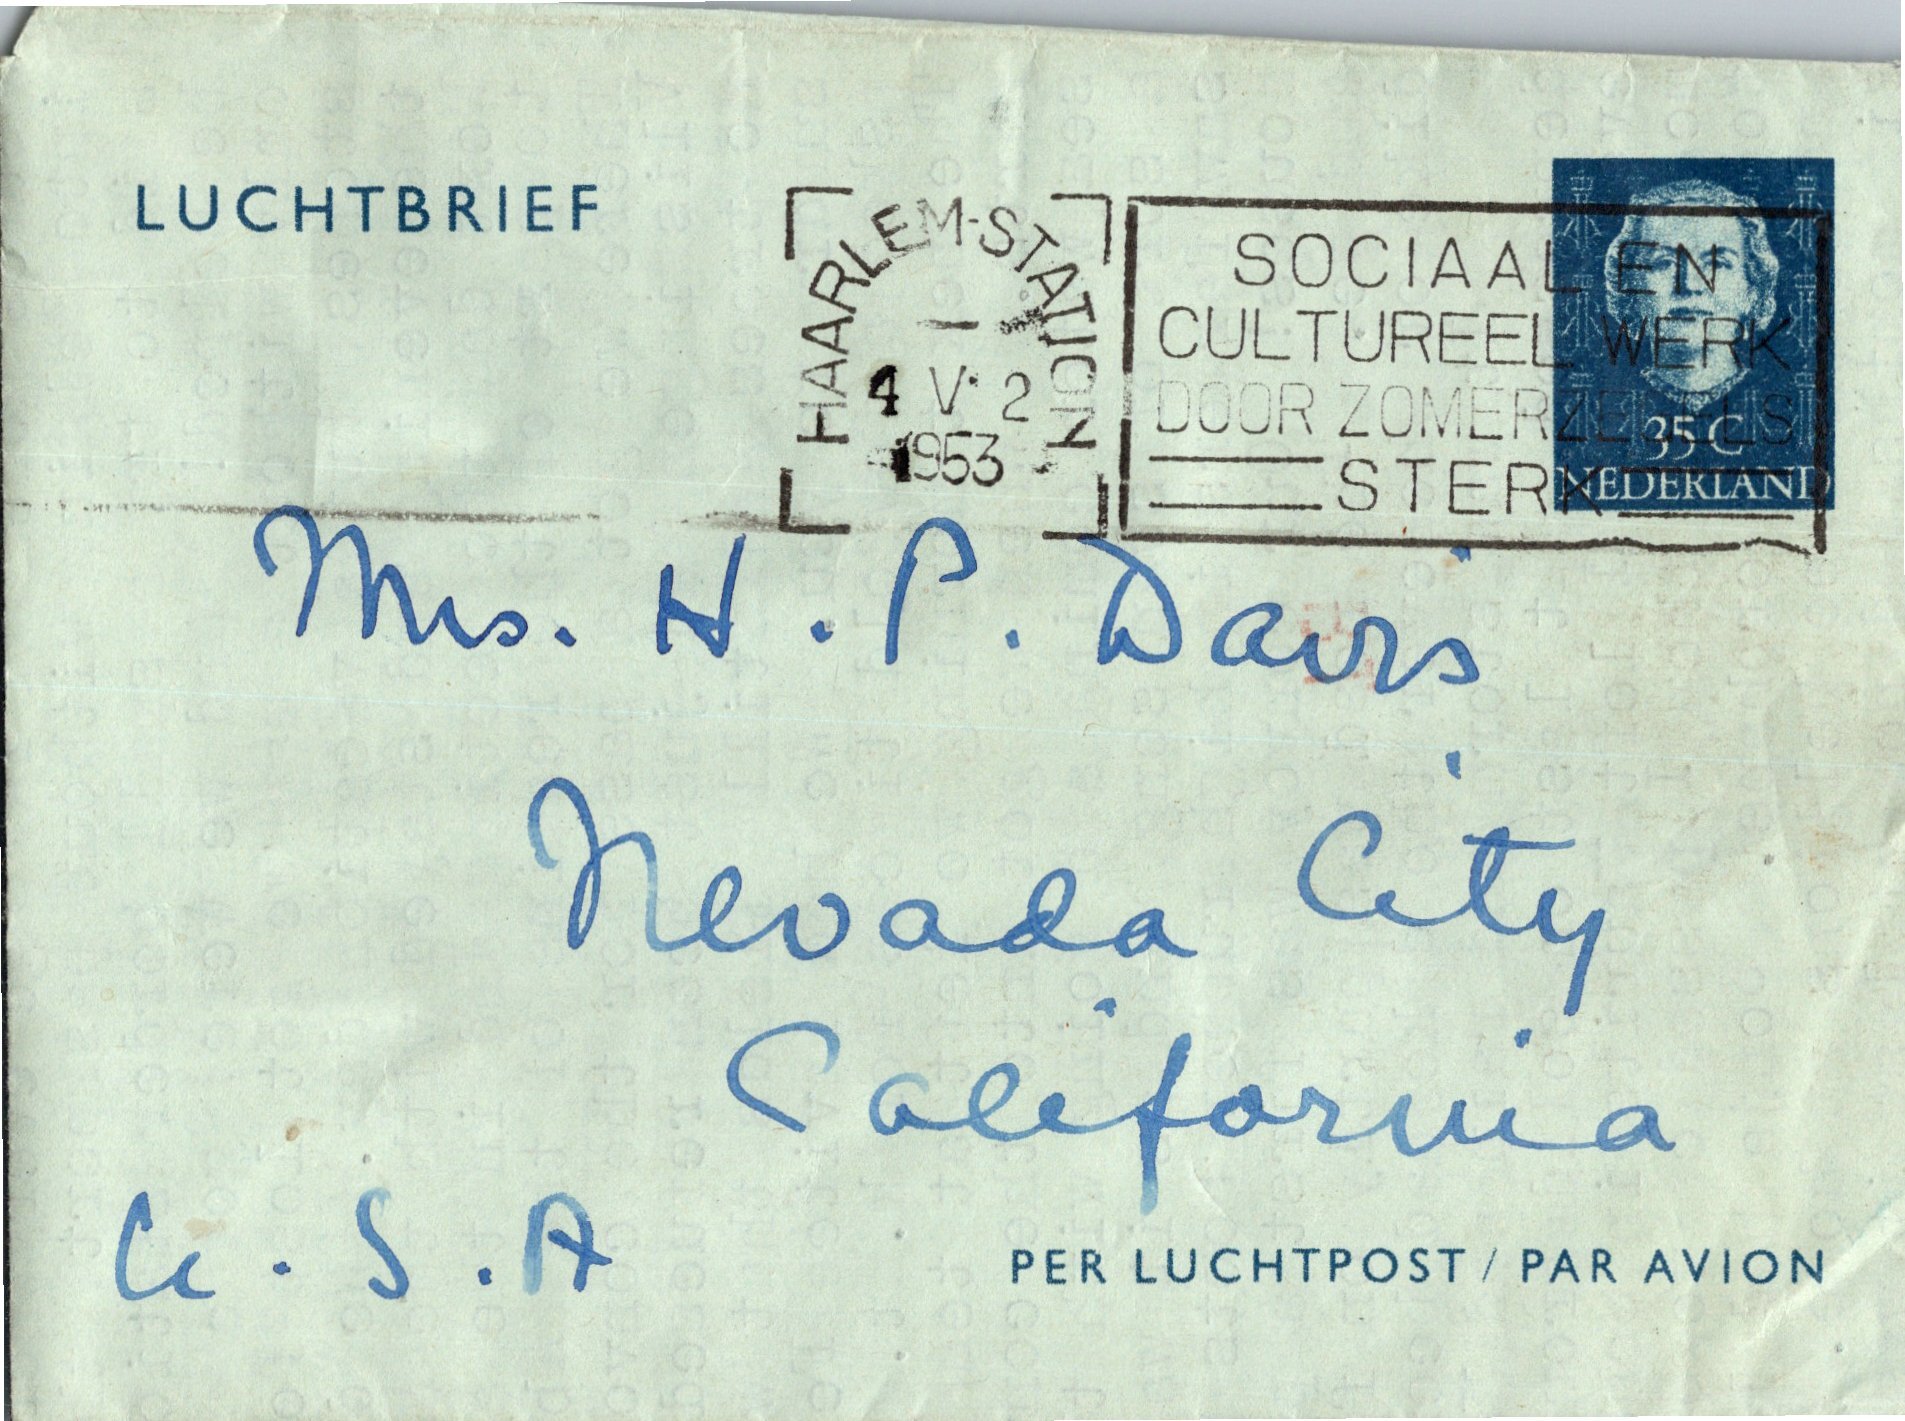 LUCHTBRIEF
HAARLEM-STATION
4 V 2
1953
SOCIAAL EN
CULTUREEL WERK
DOOR ZOMERZEGELS
STERK
35 C
NEDERLAND
Mrs. H. P. Davis
Nevada City
California
U.S.A
PER LUCHTPOST / PAR AVION